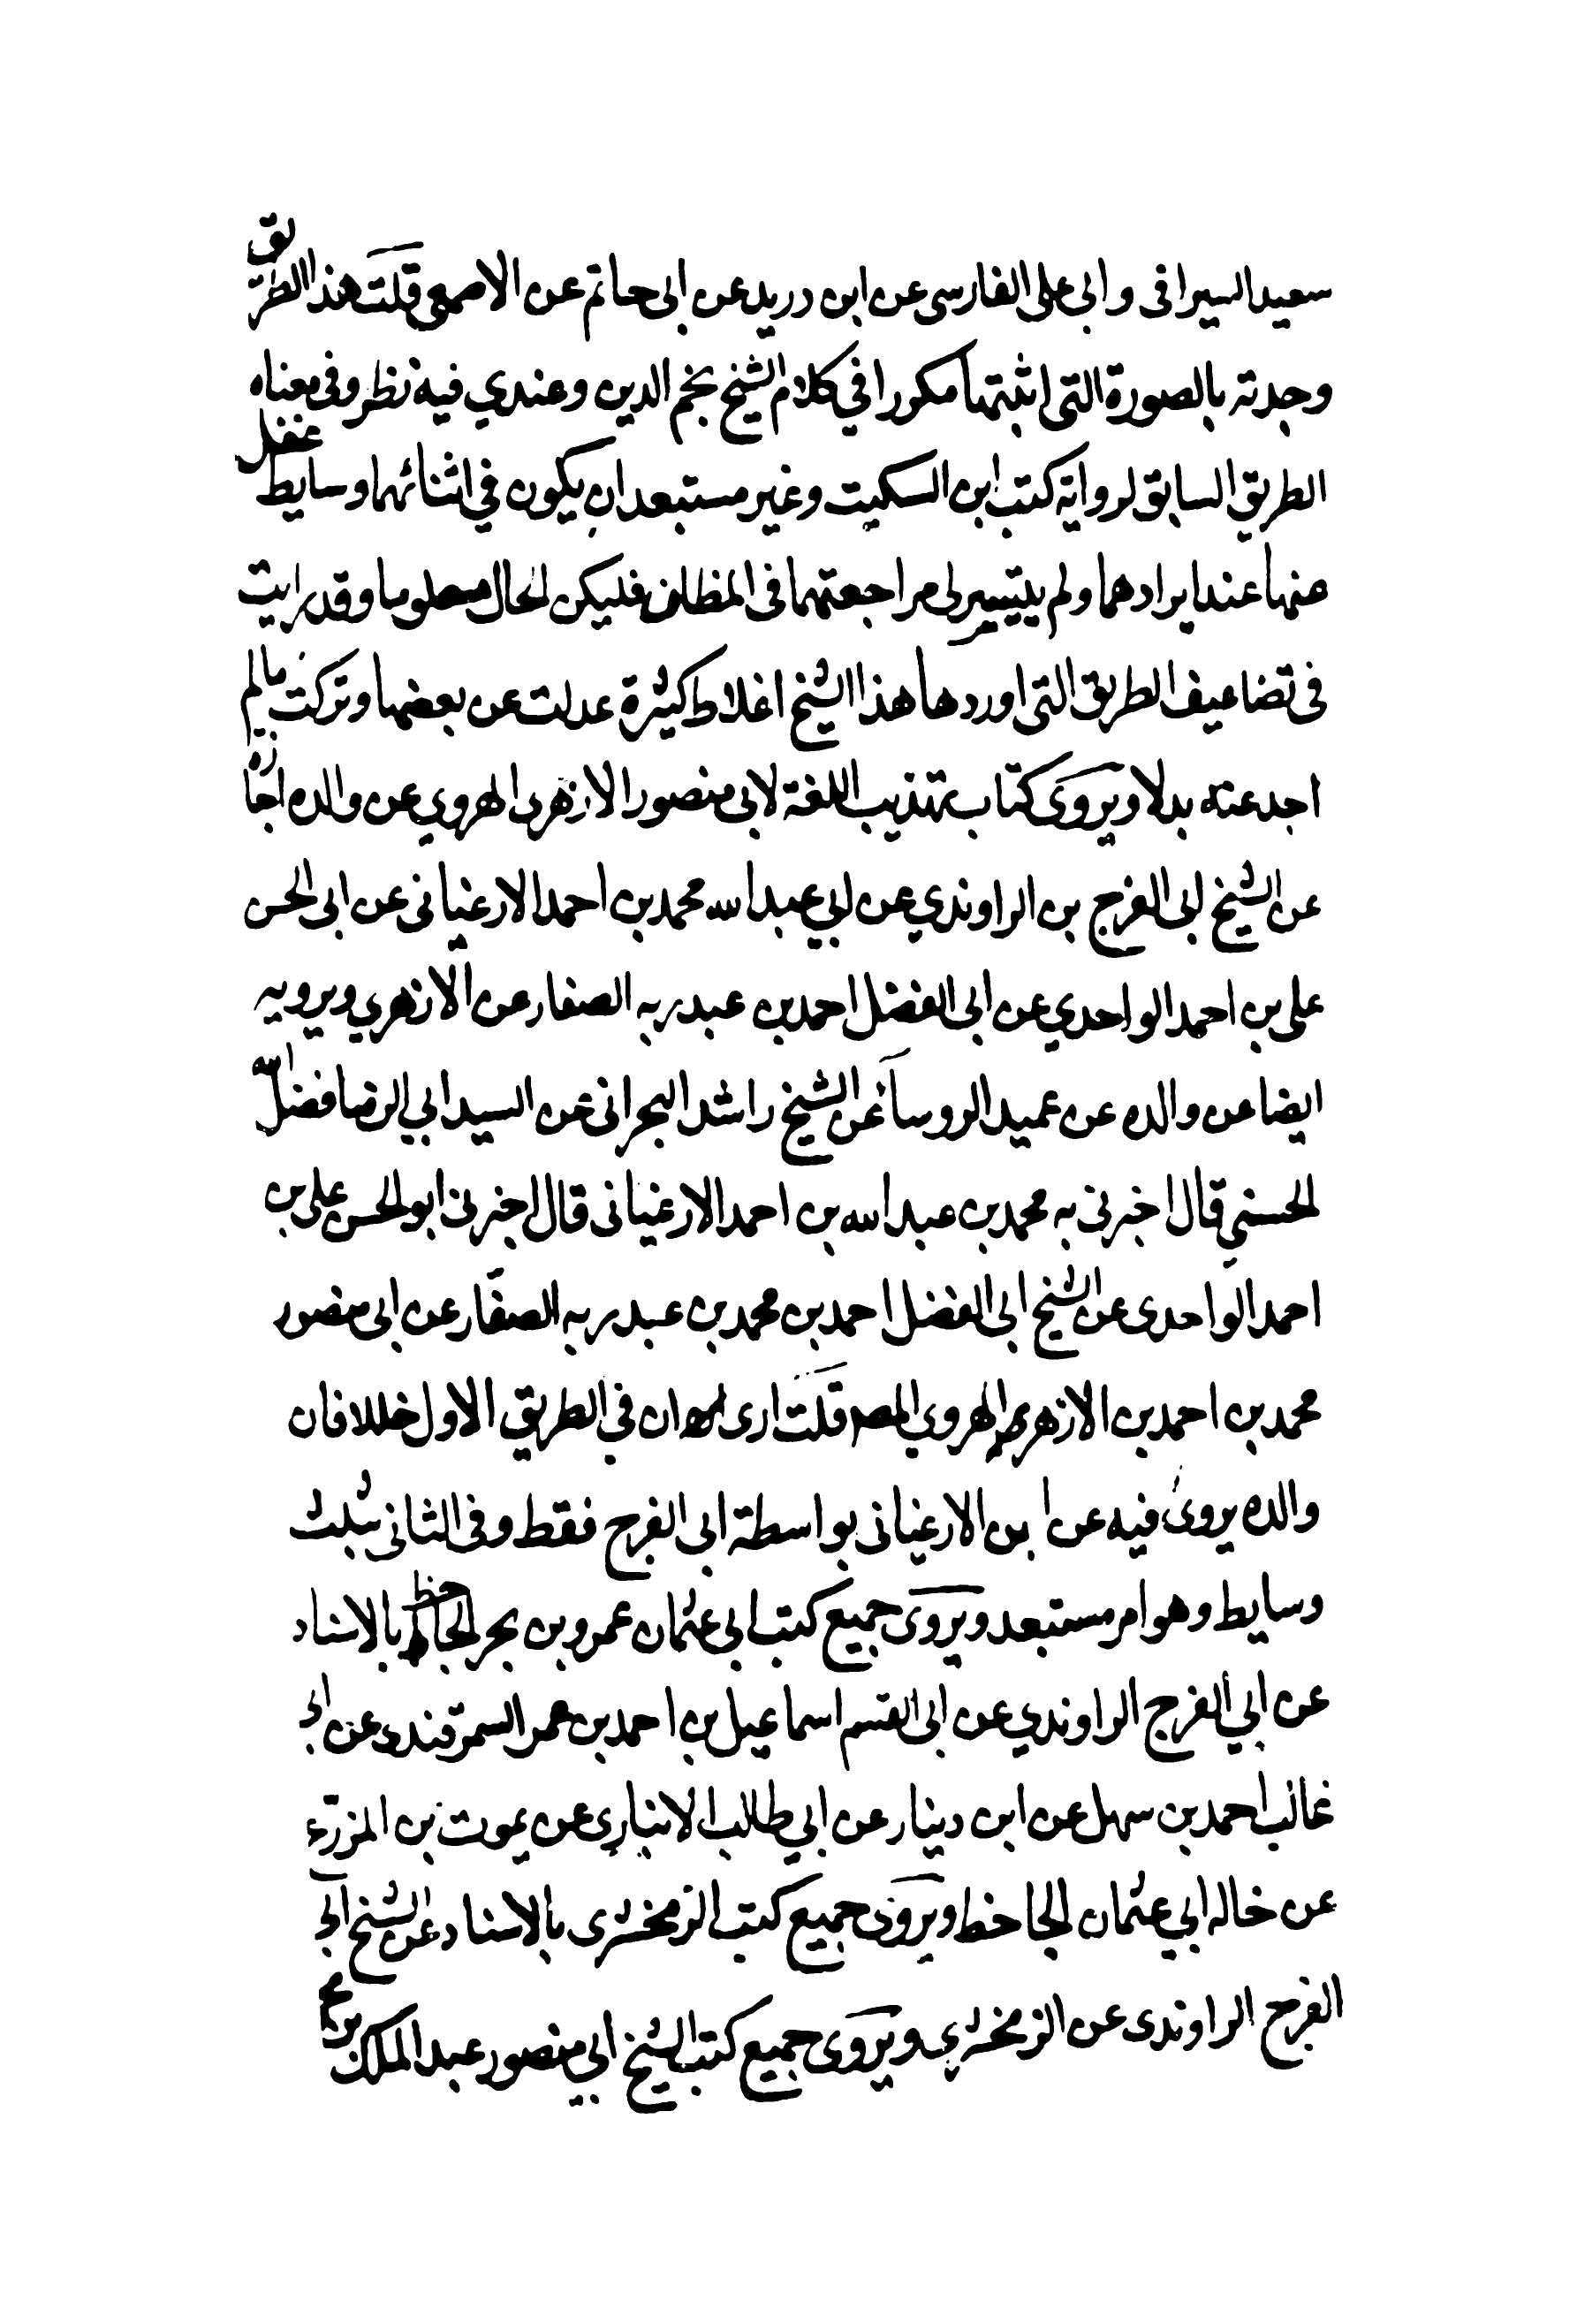 سعيد السيرافى وابى على الفارسى عن ابن دريد عن ابى حاتم عن الاصمعى قلت هذا الطريق
وجدته بالصورة التى اثبتها مكررا في كلام الشيخ نجم الدين وعندي فيه نظر وفى معناه
الطريق السابق لرواية كتب ابن السكيت وغير مستبعد ان يكون في اثنائهما وسايط غفل
عنها عند ايرادهما ولم يتيسر لى مراجعتهما فى المظان فليكن الحال معلوما وقد رايت
فى تضاعيف الطريق التى اوردها هذا الشيخ اغلاط كثيرة عدلت عن بعضها وتركت مالم
اجد عنه بدلا ويروى كتاب تهذيب اللغة لابى منصور الازهرى الهروي عن والده اجازة
عن الشيخ ابى الفرج بن الراوندي عن ابي عبد الله محمد بن احمد الارغيانى عن ابى الحسن
على بن احمد الواحدي عن ابى الفضل احمد بن عبد ربه الصفار عن الازهري ويرويه
ايضا عن والده عن عميد الروسا عن الشيخ راشد البحرانى عن السيد ابي الرضا فضل الله
الحسني قال اخبرنى به محمد بن عبد الله بن احمد الارغيانى قال اخبرنى ابو الحسن على بن
احمد الواحدى عن الشيخ ابى الفضل احمد بن محمد بن عبد ربه الصفار عن ابى منصور
محمد بن احمد بن الازهر الهروي المصـ قلت ارى ان في الطريق الاول خللا فان
والده يروى فيه عن ابن الارغيانى بواسطة ابى الفرج فقط وفى الثانى بثلث
وسايط وهو امر مستبعد ويروى جميع كتب ابى عثمان عمرو بن بحر الجاحظ بالاسناد
عن ابي الفرج الراوندي عن ابى القسم اسماعيل بن احمد بن عمر السمرقندى عن ابى
غالب احمد بن سهل عن ابن دينار عن ابي طالب الانبارى عن يموت بن المزرع
عن خاله ابي عثمان الجاحظ ويروى جميع كتب الزمخشرى بالاسناد عن الشيخ ابى
الفرج الراوندى عن الزمخشري ويروى جميع كتب الشيخ ابي منصور عبد الملك بن محمد